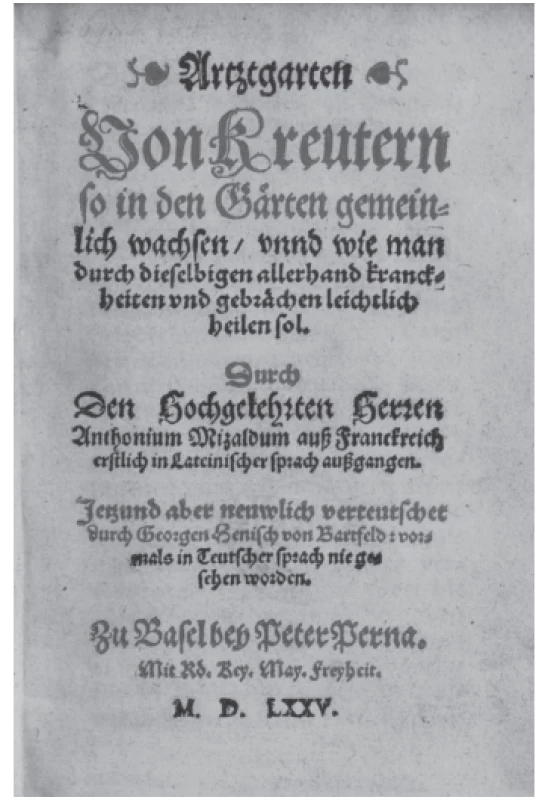 Artztgarten
Von Kreutern
so in den Gärten gemein-
lich wachsen / vnnd wie man
durch dieselbigen allerhand kranck-
heiten vnd gebrächen leichtlich
heilen sol.
Durch
Den Hochgelehrten Herren
Anthonium Mizaldum auß Franckreich
erstlich in Lateinischer sprach außgangen.
Jetzund aber neuwlich verteutschet
durch Georgen Henisch von Bartfeld: vor-
mals in Teutscher sprach nie ge-
sehen worden.
Zu Basel bey Peter Perna.
Mit Rö. Key. May. freyheit.
M. D. LXXV.